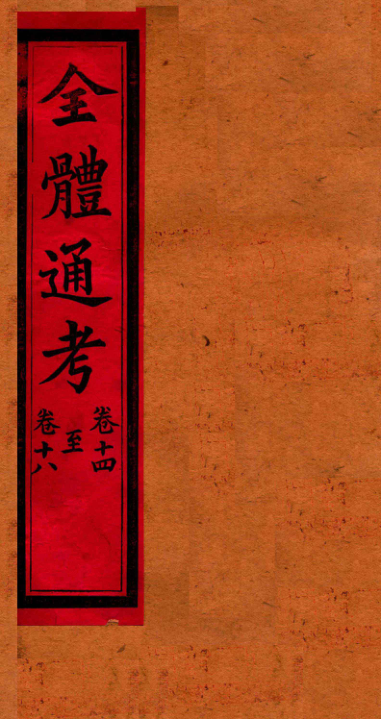 全體通考
卷十四
至
卷十八